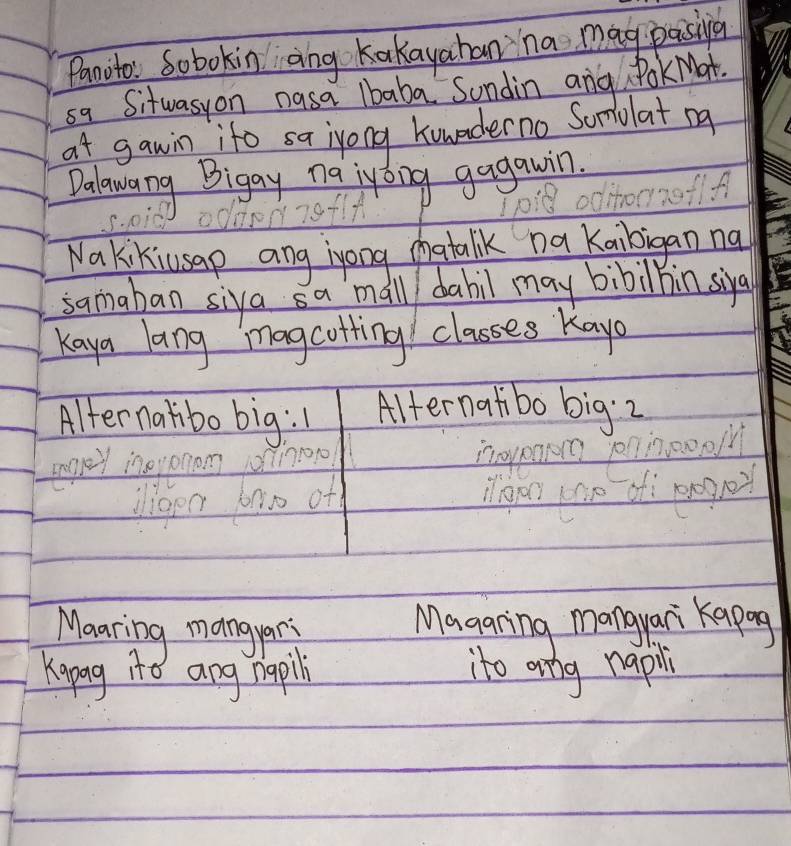 Panoto: Sobokin ang Kakayahan na magpasiya
sa Sitwasyon nasa Ibaba. Sundin ang PokMat.
at gawin ito sa iyong kuwaderno Somulat ng
Dalawang Bigay na iyong gagawin.
Nakikiusap ang iyong matalik na Kaibigan na
samahan siya sa mall dahil may bibilhin siya
kaya lang magcutting classes kayo
Alternatibo big:1 Alternatibo big:2
Maaring mangyari Magaaring mangyari Kapag
Kapag ito ang napili ito ang napili